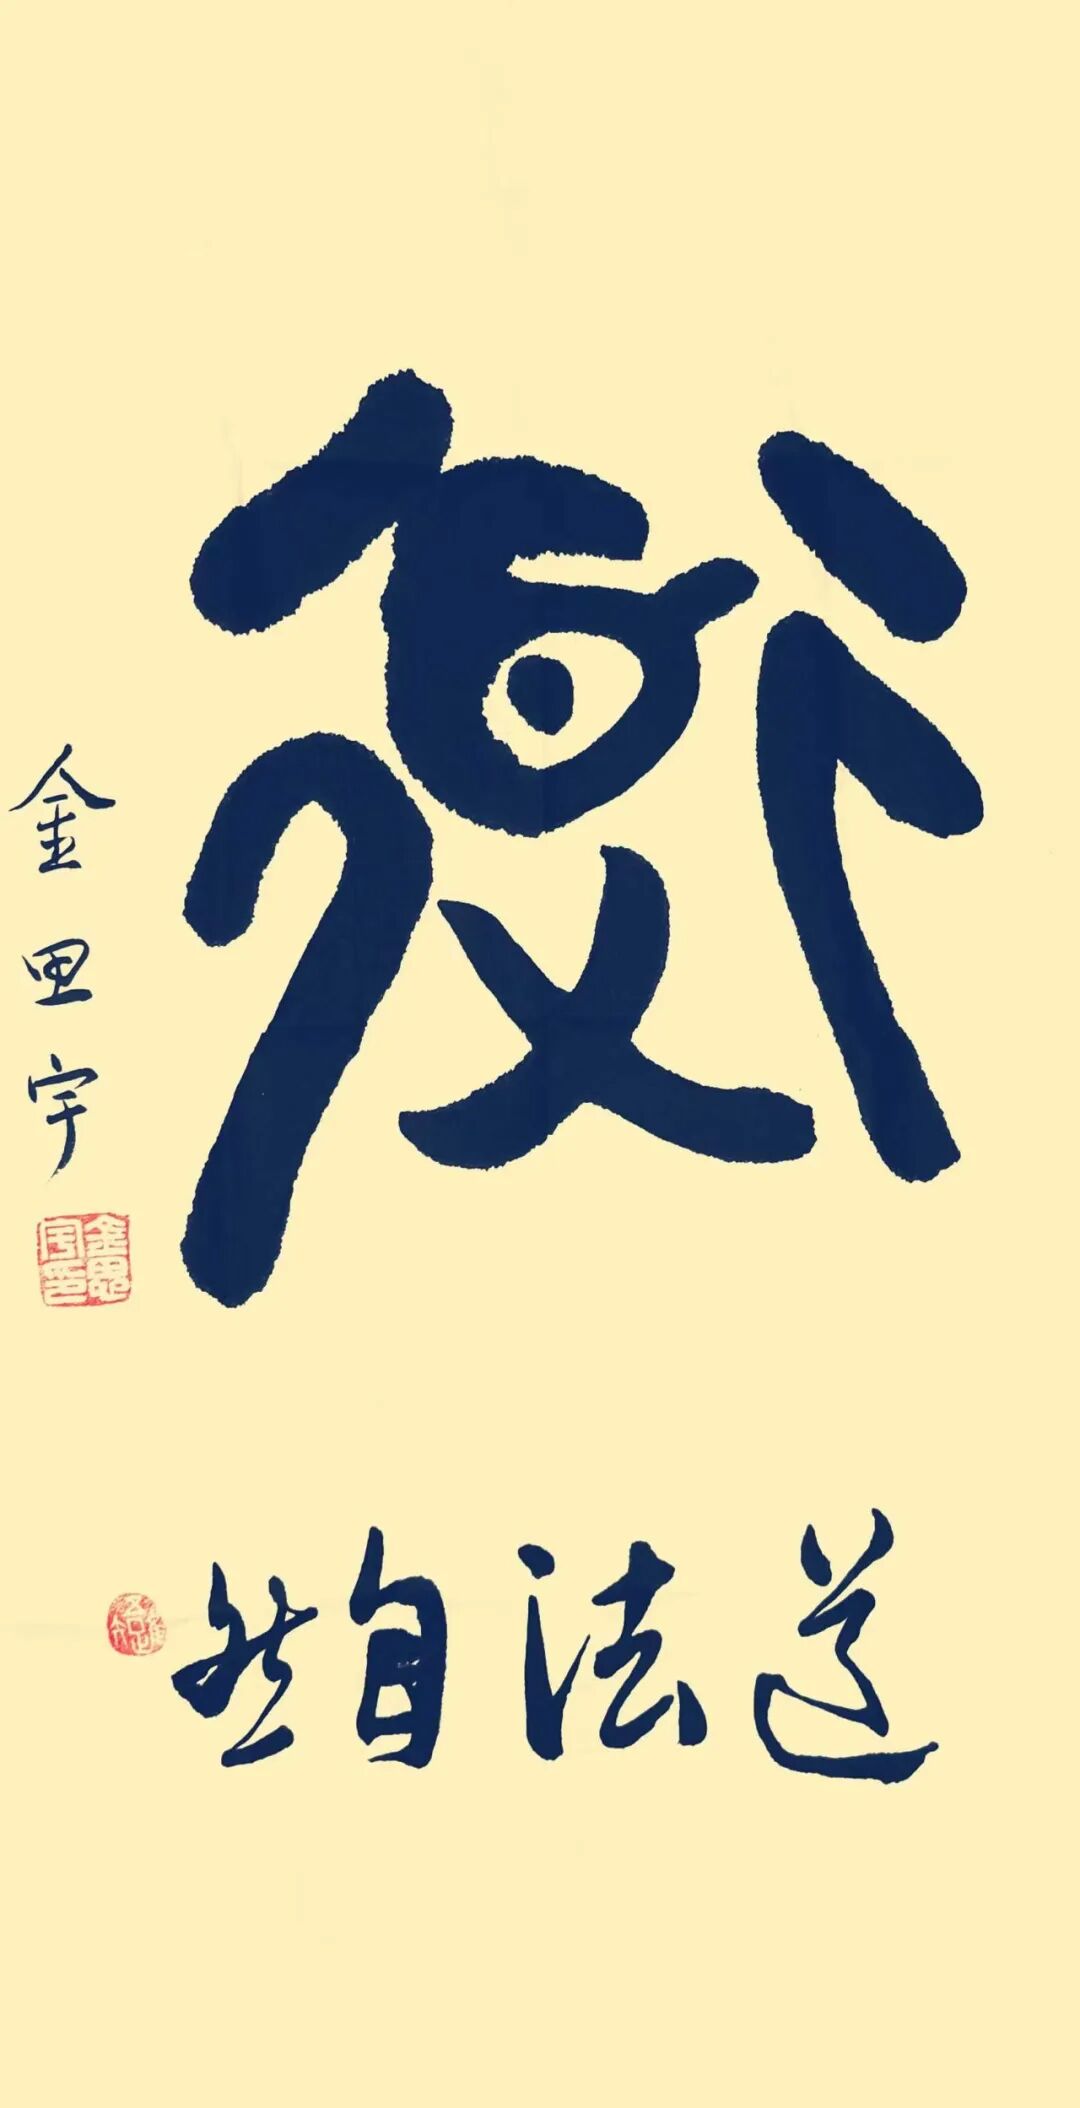 道
道法自然
金思宇
金思宇印